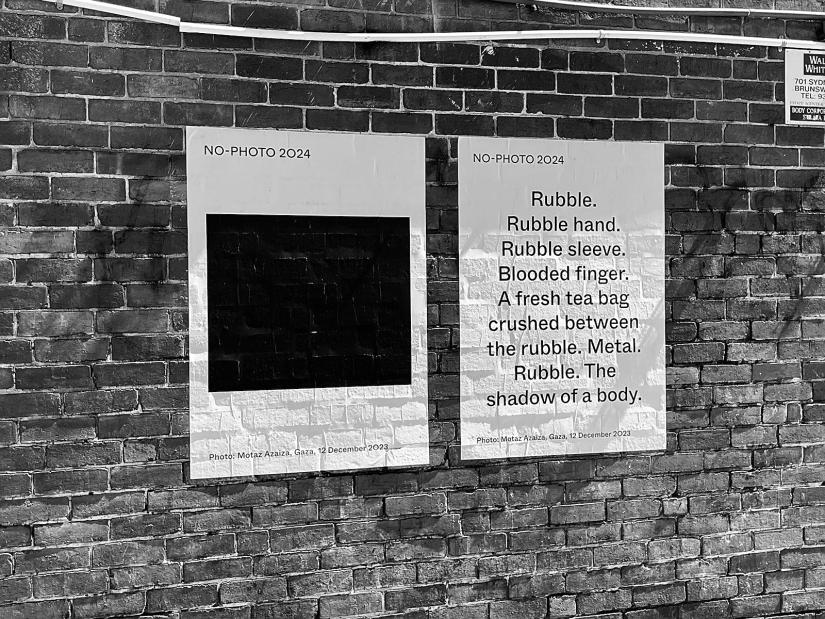 NO-PHOTO 2024
Photo: Motaz Azaiza, Gaza, 12 December 2023
NO-PHOTO 2024
Rubble.
Rubble hand.
Rubble sleeve.
Blooded finger.
A fresh tea bag
crushed between
the rubble. Metal.
Rubble. The
shadow of a body.
Photo: Motaz Azaiza, Gaza, 12 December 2023
701
TEL:
BODY